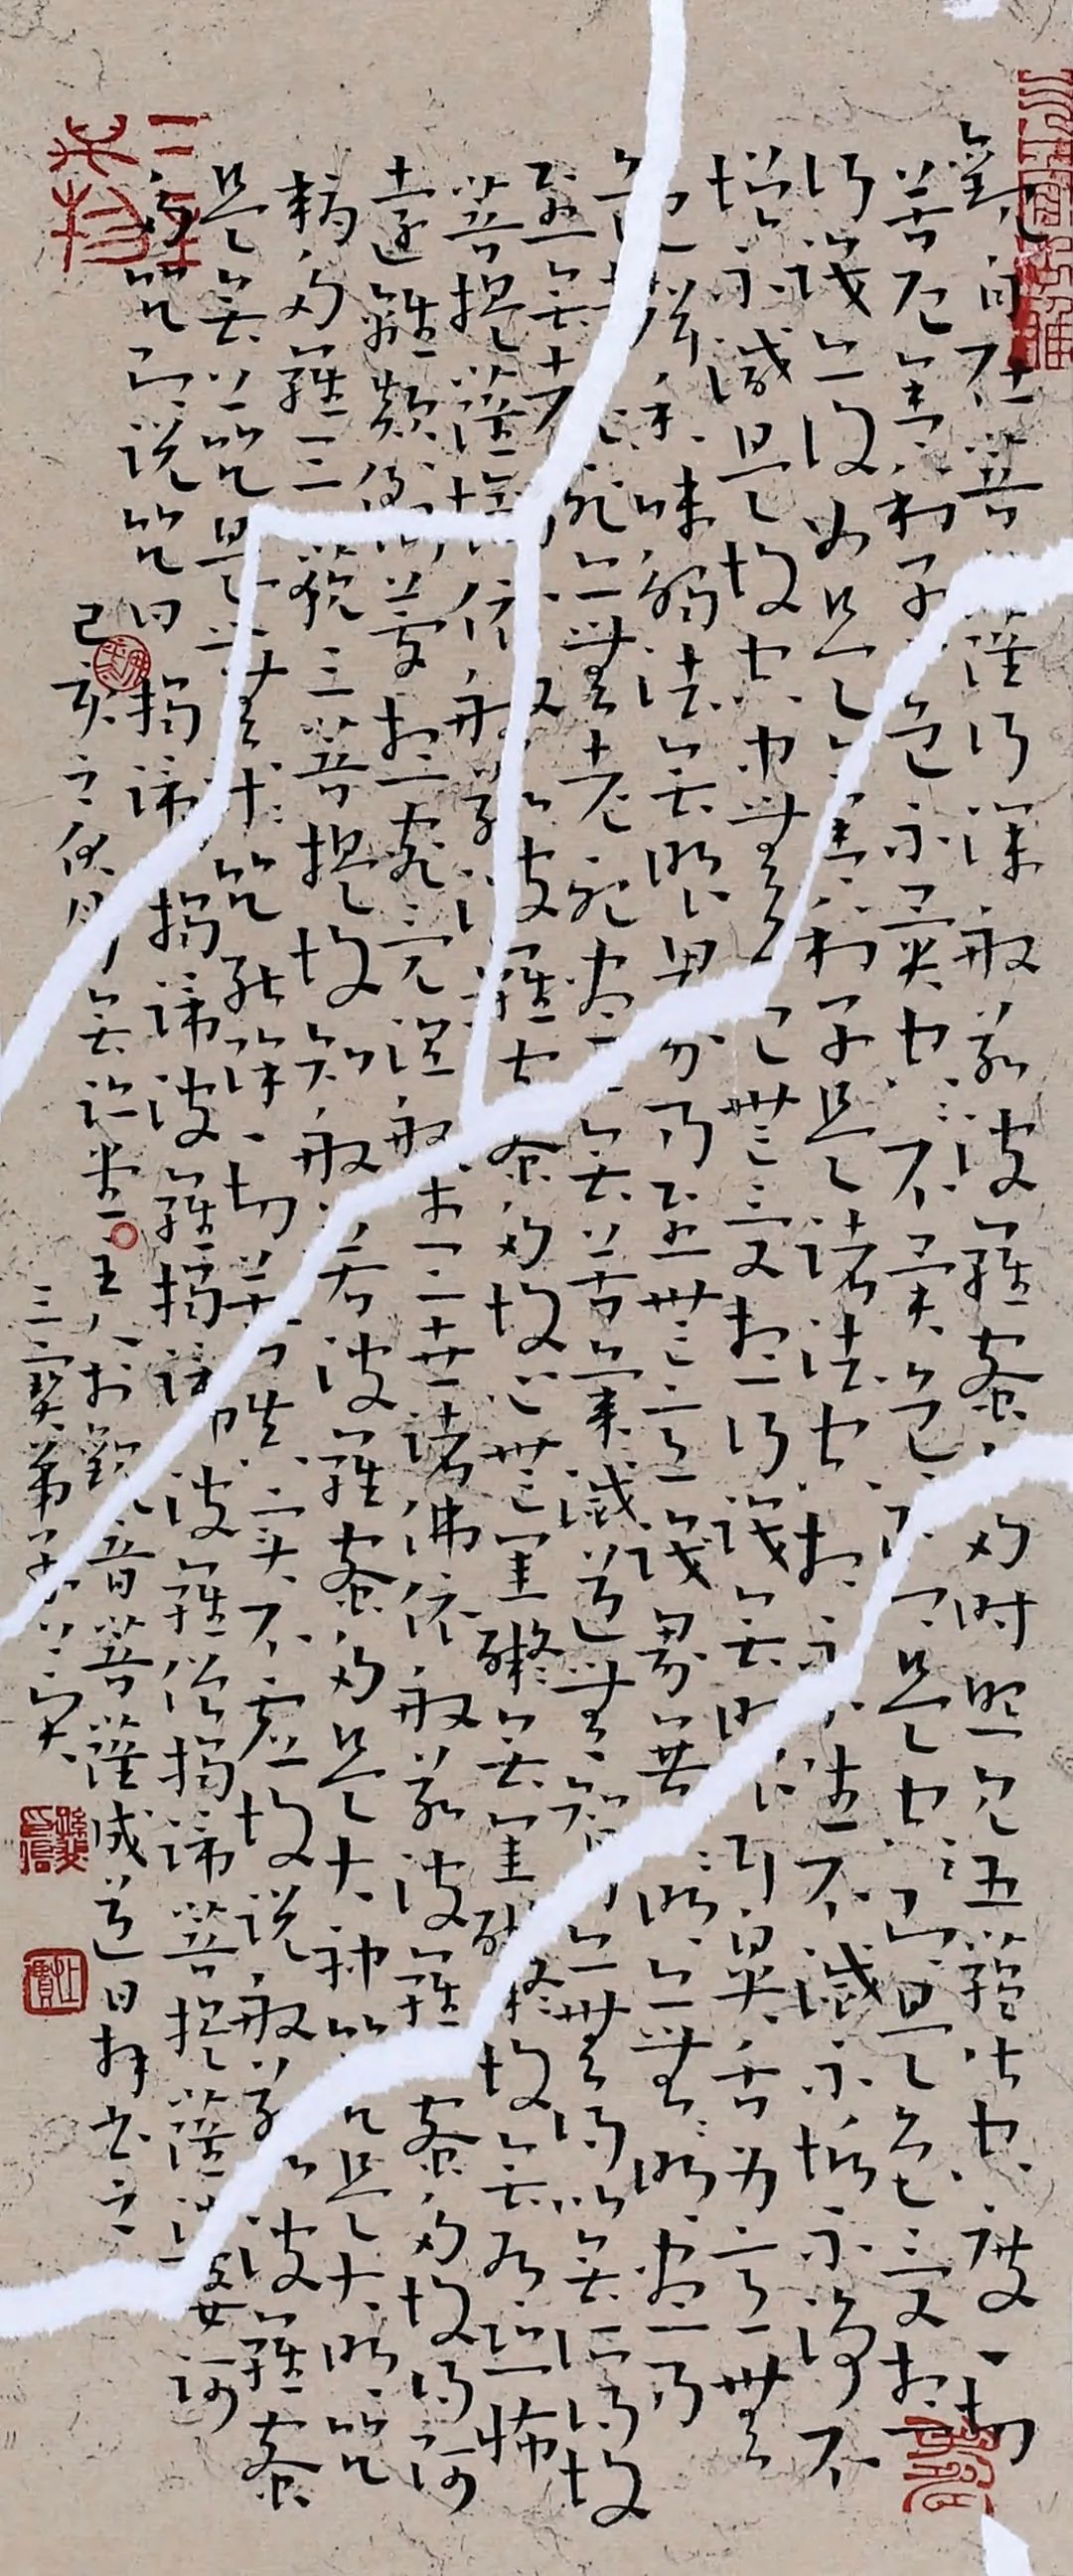 觀自在菩薩行深般若波羅蜜多時照見五蘊皆空度一切
苦厄舍利子色不異空空不異色色即是空空即是色受想
行識亦復如是舍利子是諸法空相不生不滅不垢不淨不
增不減是故空中無色無受想行識無眼耳鼻舌身意無
色聲香味觸法無眼界乃至無意識界無無明亦無無明盡乃
至無老死亦無老死盡無苦集滅道無智亦無得以無所得故
菩提薩埵依般若波羅蜜多故心無罣礙無罣礙故無有恐怖
遠離顛倒夢想究竟涅槃三世諸佛依般若波羅蜜多故得阿
耨多羅三藐三菩提故知般若波羅蜜多是大神咒是大明咒
是無上咒是無等等咒能除一切苦真實不虛故說般若波羅蜜
多咒即說咒曰揭諦揭諦波羅揭諦波羅僧揭諦菩提薩婆訶
己亥之伏月無堂主人於觀音菩薩成道日拜書之
三寶弟子